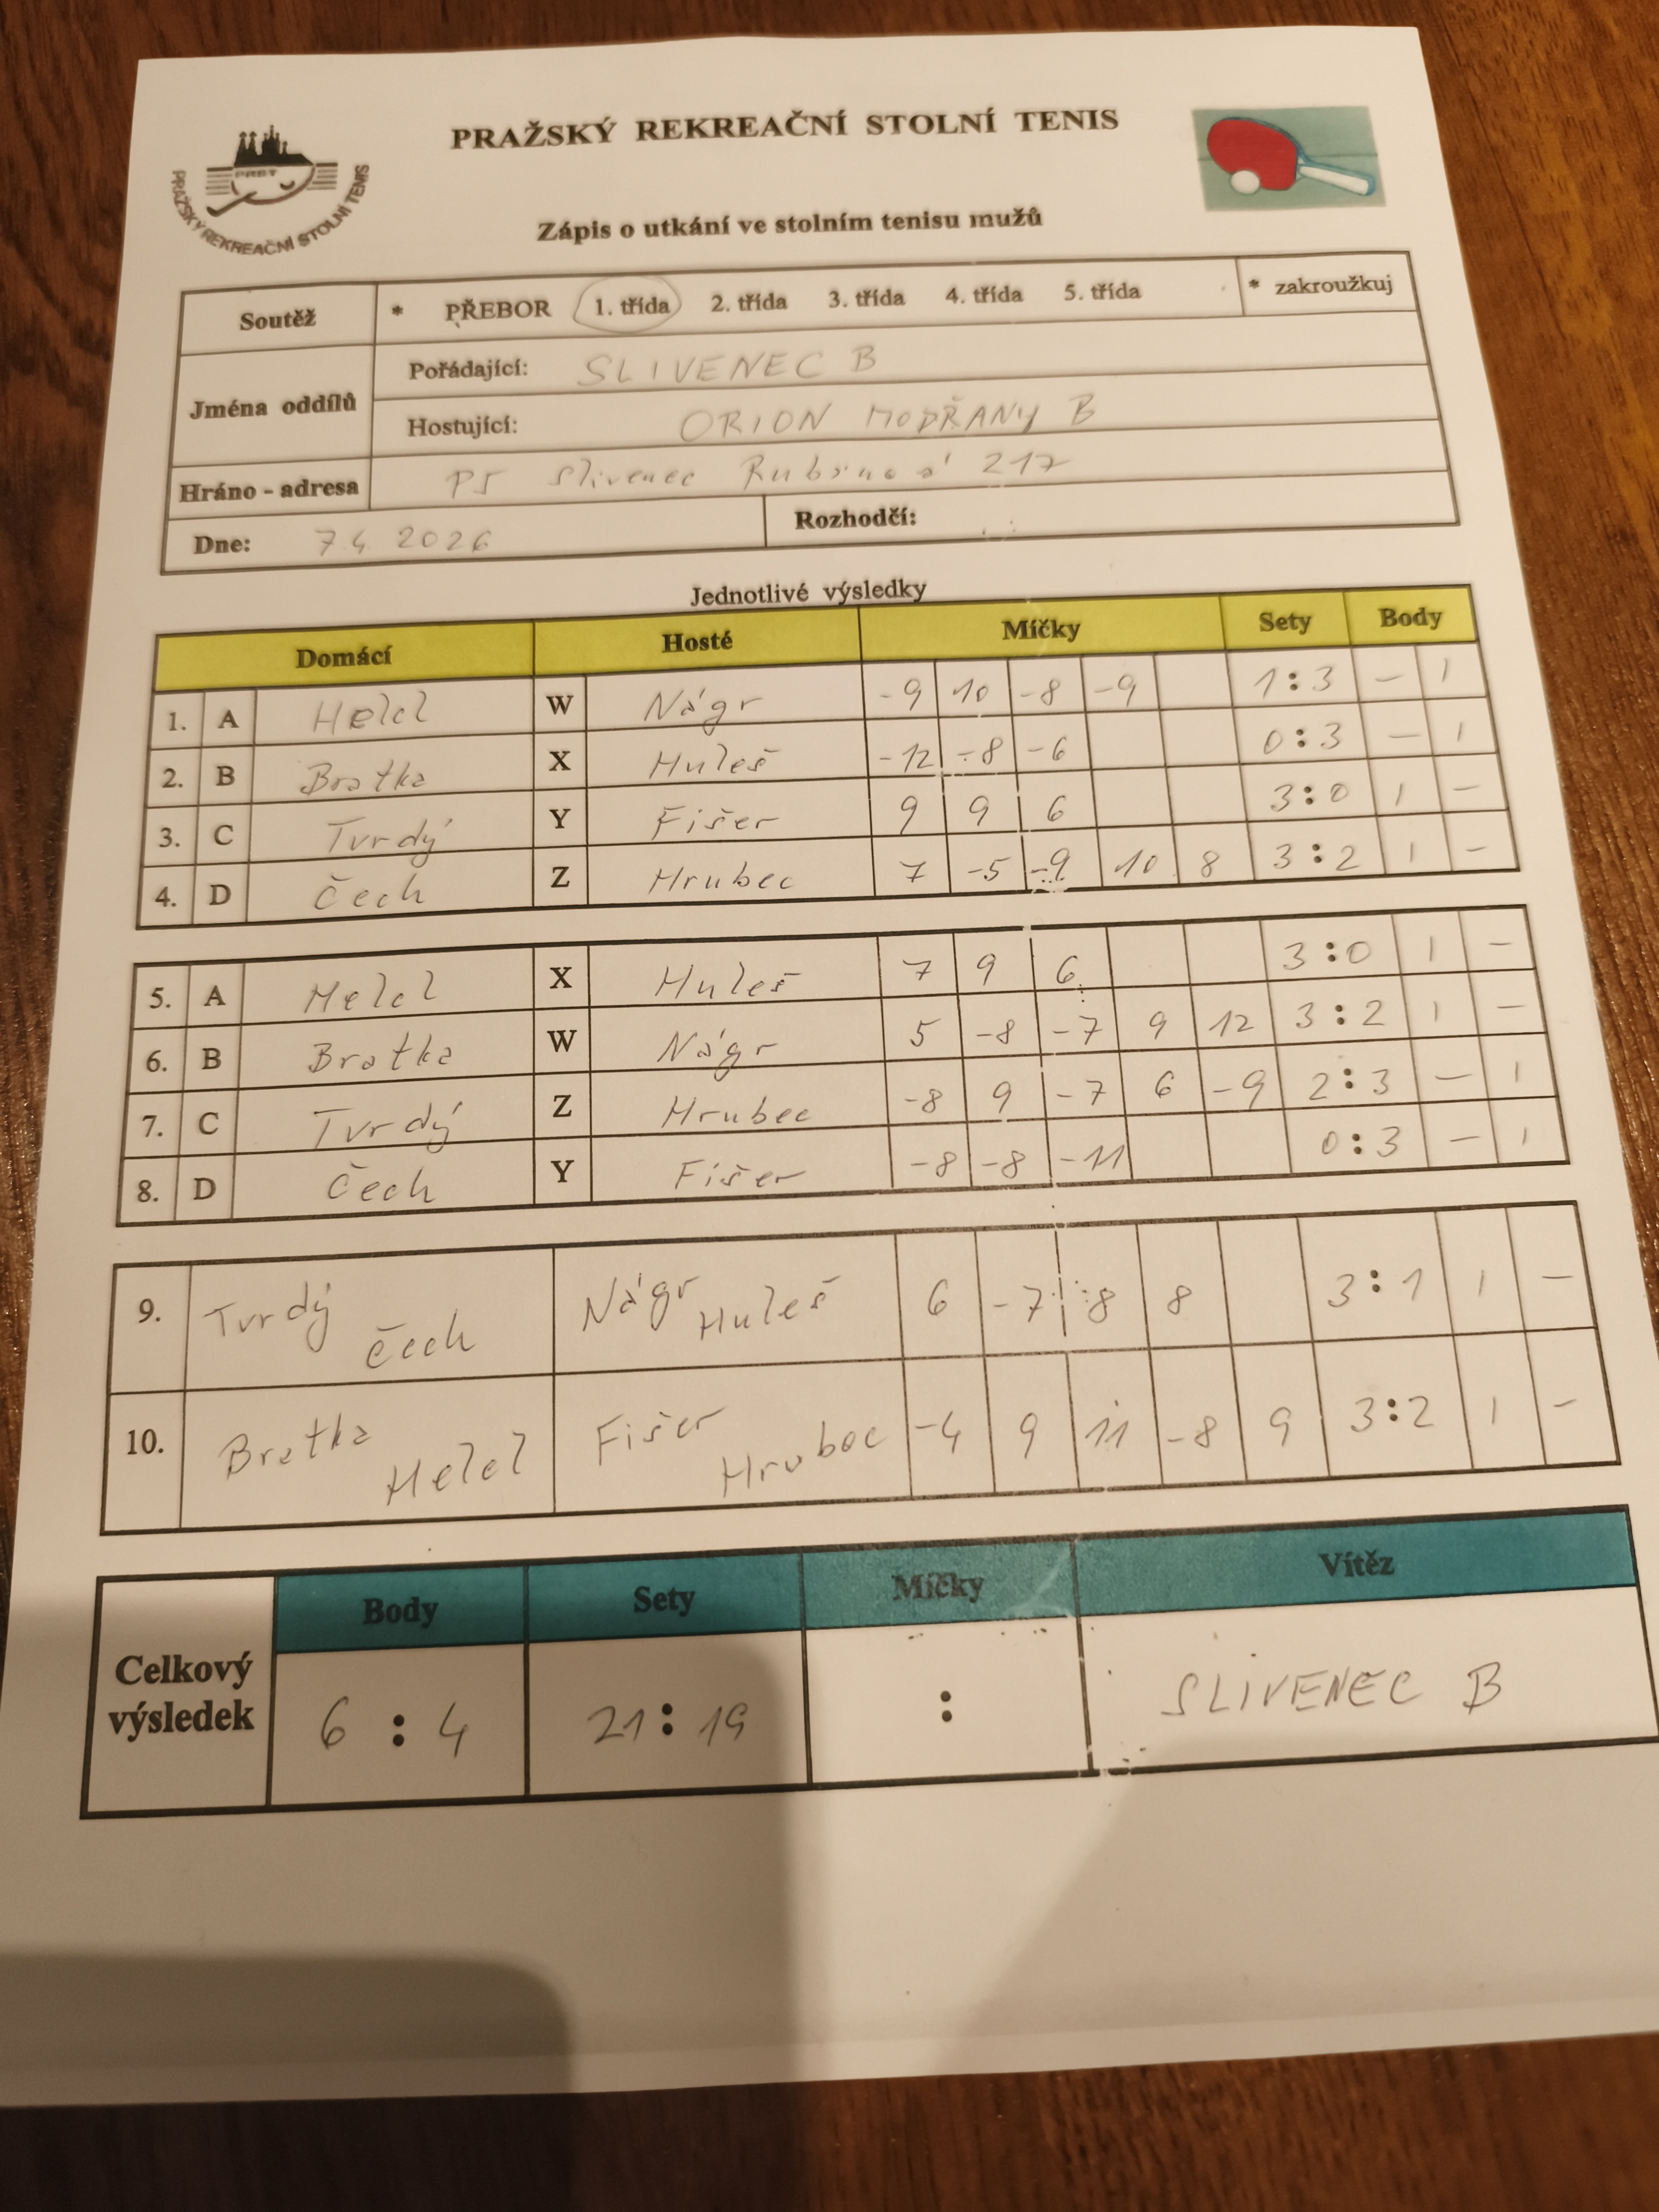 PRAŽSKÝ REKREAČNÍ STOLNÍ TENIS
PRST
PRAŽSKÝ REKREAČNÍ STOLNÍ TENIS
Zápis o utkání ve stolním tenisu mužů
Soutěž * PŘEBOR 1. třída 2. třída 3. třída 4. třída 5. třída * zakroužkuj
Jména oddílů
Pořádající: SLIVENEC B
Hostující: ORION MODŘANY B
Hráno - adresa P5 Slivenec 217
Dne: 7.4. 2026 Rozhodčí:
Jednotlivé výsledky
Domácí Hosté Míčky Sety Body
1. A Helcl W Nágr -9 10 -8 -9 1:3 - 1
2. B Bratka X Huleš -12 -8 -6 0:3 - 1
3. C Tvrdý Y Fišer 9 9 6 3:0 1 -
4. D Čech Z Hrubec 7 -5 -9 10 8 3:2 1 -
5. A Helcl X Huleš 7 9 6 3:0 1 -
6. B Bratka W Nágr 5 -8 -7 9 12 3:2 1 -
7. C Tvrdý Z Hrubec -8 9 -7 6 -9 2:3 - 1
8. D Čech Y Fišer -8 -8 -11 0:3 - 1
9. Tvrdý Čech Nágr Huleš 6 -7 8 8 3:1 1 -
10. Bratka Helcl Fišer Hrubec -4 9 11 -8 9 3:2 1 -
Body Sety Míčky Vítěz
Celkový výsledek 6 : 4 21 : 19 : SLIVENEC B